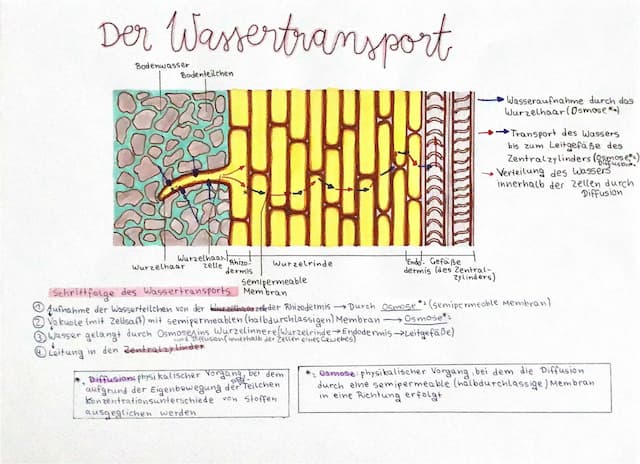 Der Wassertransport
Bodenwasser
Bodenteilchen
Wasseraufnahme durch das
Wurzelhaar (Osmose*²)
Transport des Wassers
bis zum Leitgefäße des
Zentralzylinders (Osmose*²)
Diffusion*
Verteilung des Wassers
innerhalb der Zellen durch
Diffusion
Wurzelhaar
Wurzelhaar-
zelle
Rhizo-
dermis
semipermeable
Membran
Wurzelrinde
Endo-
dermis
Gefäße
(des Zentral-
zylinders)
Schrittfolge des Wassertransports
① Aufnahme der Wasserteilchen von der der Rhizodermis → Durch Osmose*² (semipermeable Membran)
② Vakuole (mit Zellsaft) mit semipermeablen (halbdurchlässigen) Membran → Osmose*²
③ Wasser gelangt durch Osmose ins Wurzelinnere (Wurzelrinde → Endodermis → Leitgefäße)
und Diffusion (innerhalb der Zellen eines Gewebes)
④ Leitung in den Zentralzylinder
*¹ Diffusion: physikalischer Vorgang, bei dem
aufgrund der Eigenbewegung der Teilchen
Konzentrationsunterschiede von Stoffen
ausgeglichen werden
*² Osmose: physikalischer Vorgang, bei dem die Diffusion
durch eine semipermeable (halbdurchlässige) Membran
in eine Richtung erfolgt